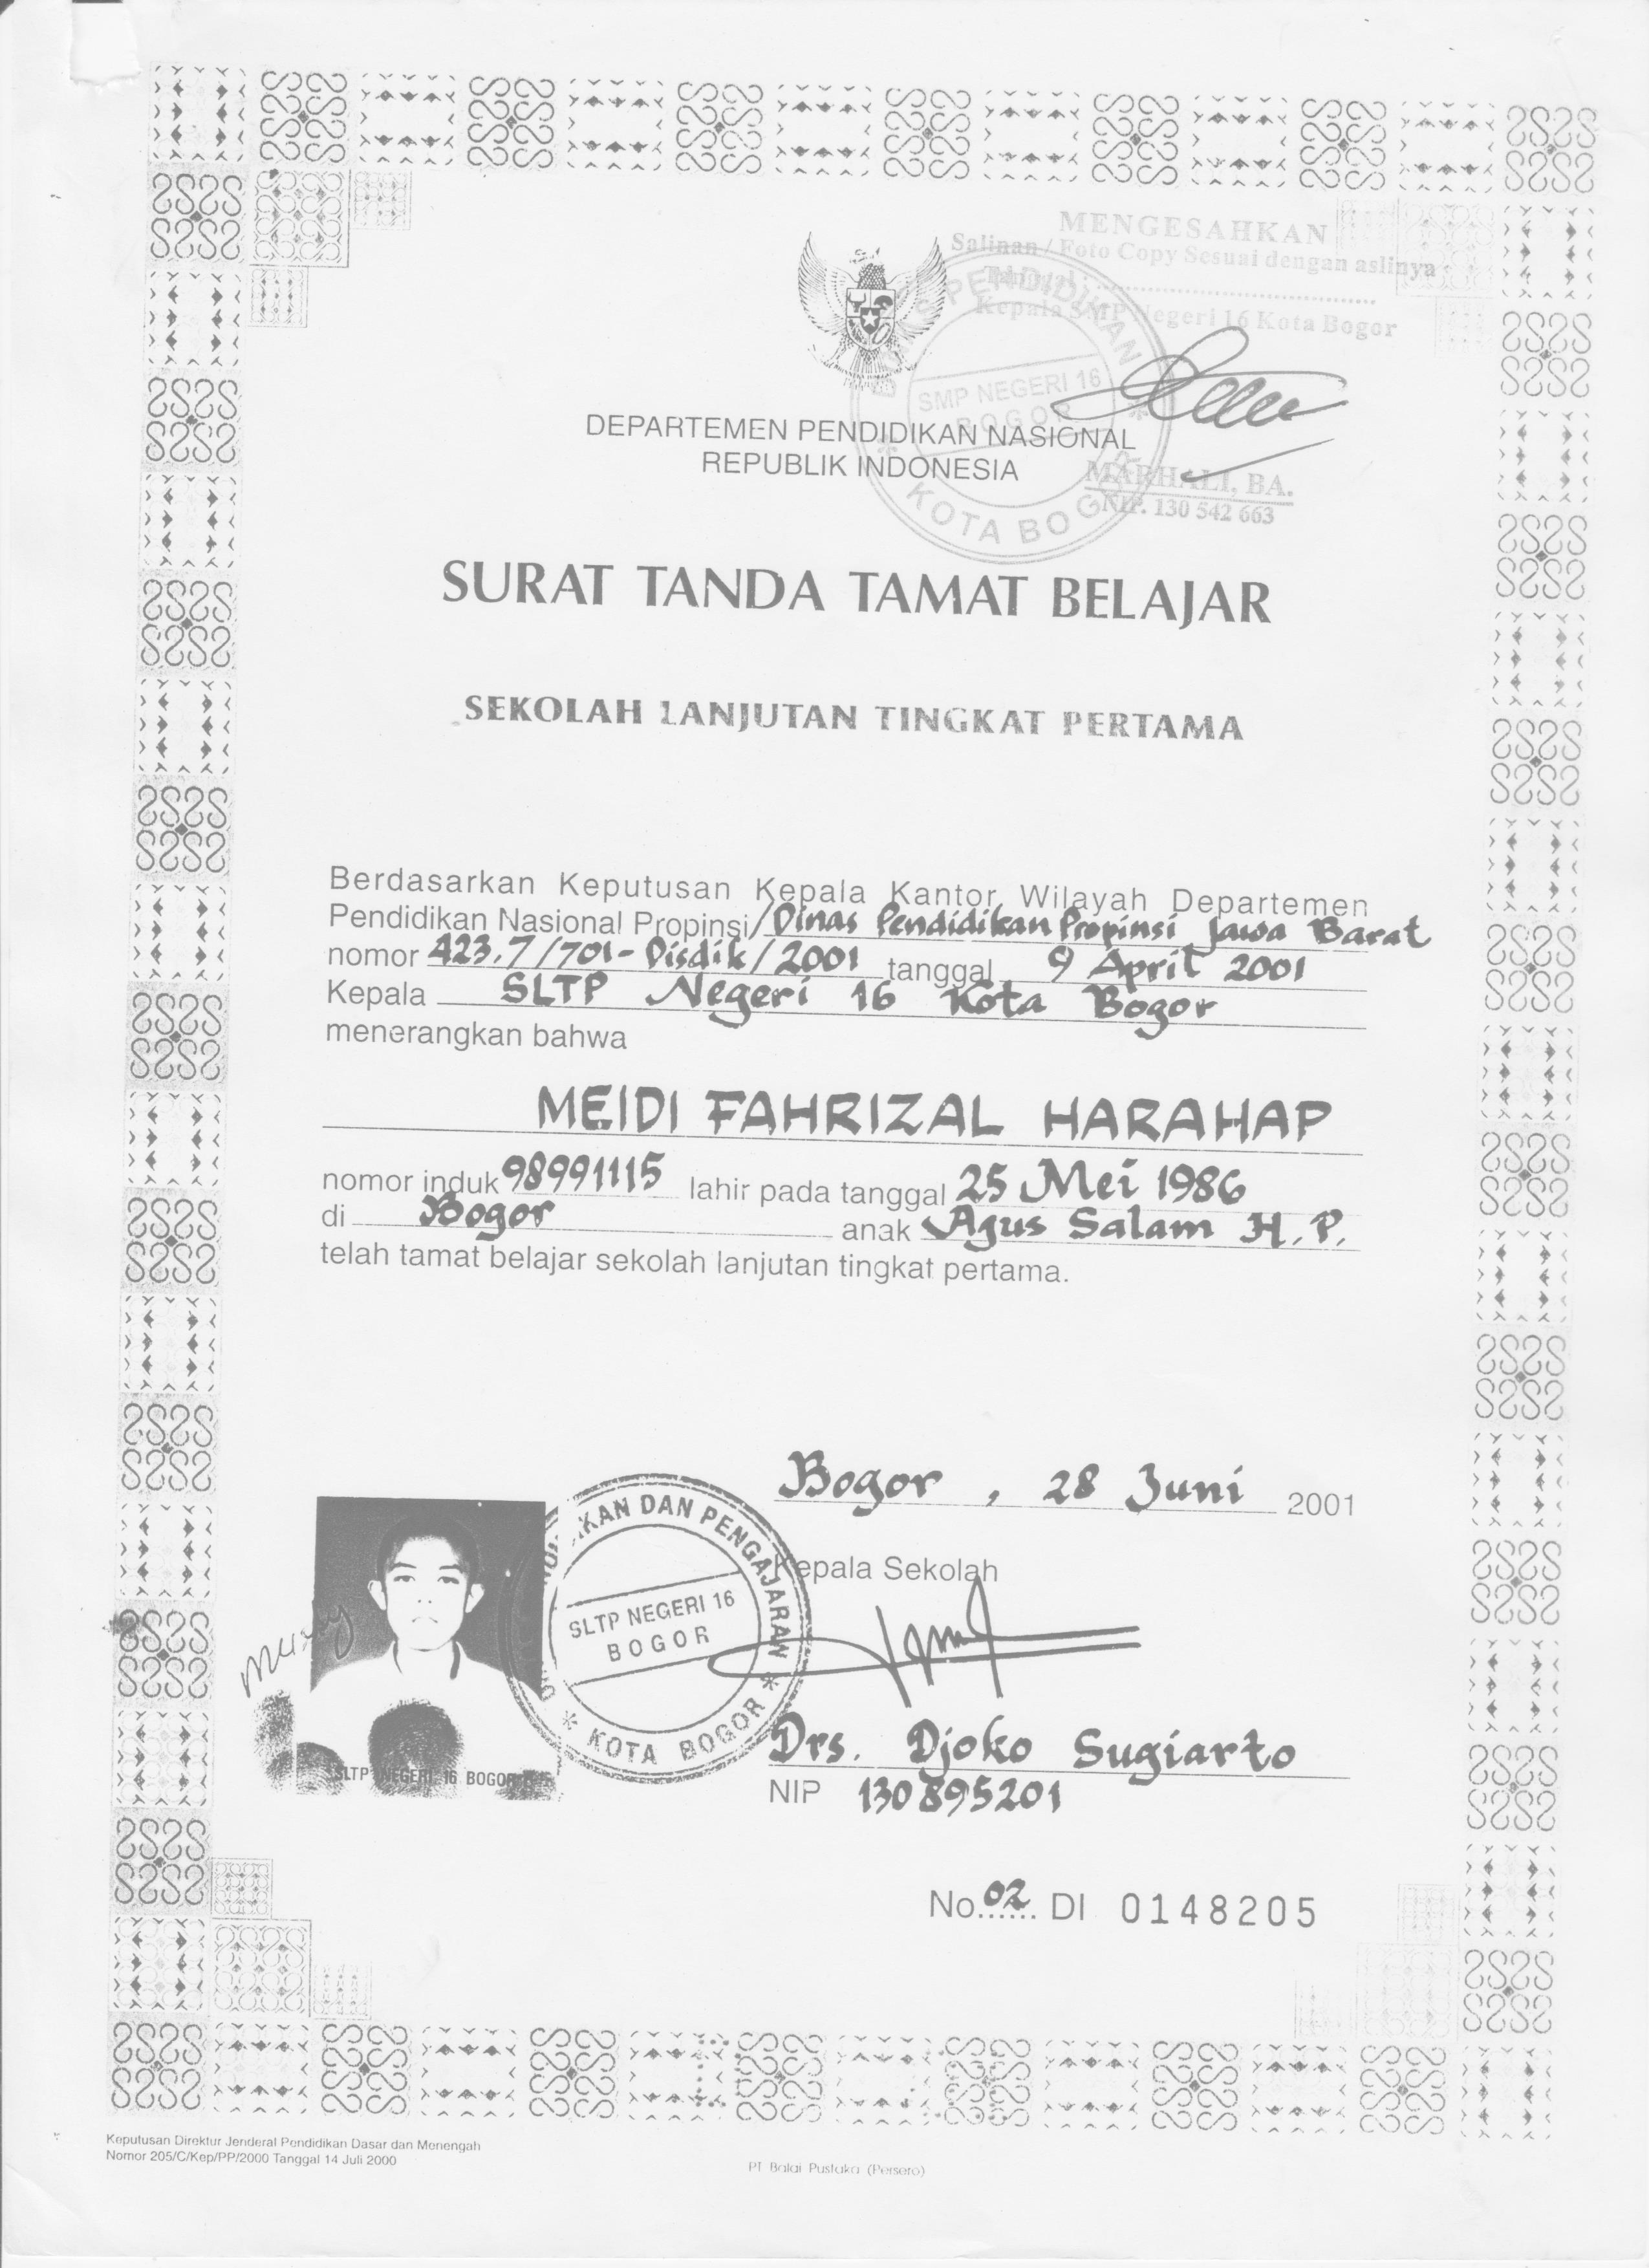 MENGESAHKAN
Salinan / Foto Copy Sesuai dengan aslinya
Tanggal : ........................................
Kepala SMP Negeri 16 Kota Bogor
PENDIDIKAN
SMP NEGERI 16
BOGOR
KOTA BOGOR
MARHALI, BA.
NIP. 130 542 663
DEPARTEMEN PENDIDIKAN NASIONAL
REPUBLIK INDONESIA
SURAT TANDA TAMAT BELAJAR
SEKOLAH LANJUTAN TINGKAT PERTAMA
Berdasarkan Keputusan Kepala Kantor Wilayah Departemen
Pendidikan Nasional Propinsi/Dinas Pendidikan Propinsi Jawa Barat
nomor 423.7/701-Disdik/2001 tanggal 9 April 2001
Kepala SLTP Negeri 16 Kota Bogor
menerangkan bahwa
MEIDI FAHRIZAL HARAHAP
nomor induk 98991115 lahir pada tanggal 25 Mei 1986
di Bogor anak Agus Salam H.P.
telah tamat belajar sekolah lanjutan tingkat pertama.
Bogor, 28 Juni 2001
Kepala Sekolah
DAN PENGAJARAN
SLTP NEGERI 16
BOGOR
* KOTA BOGOR *
SLTP NEGERI 16 BOGOR
Drs. Djoko Sugiarto
NIP 130895201
No. 02 DI 0148205
Keputusan Direktur Jenderal Pendidikan Dasar dan Menengah
Nomor 205/C/Kep/PP/2000 Tanggal 14 Juli 2000
PT Balai Pustaka (Persero)